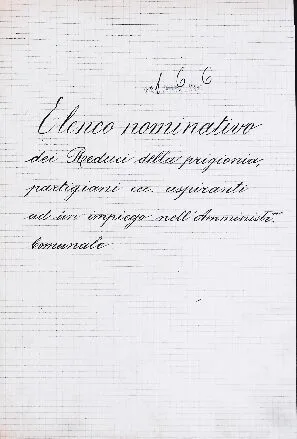 1 6 6
Elenco nominativo
dei Reduci della prigionia,
partigiani ecc. aspiranti
ad un impiego nell'Amministr.
Comunale